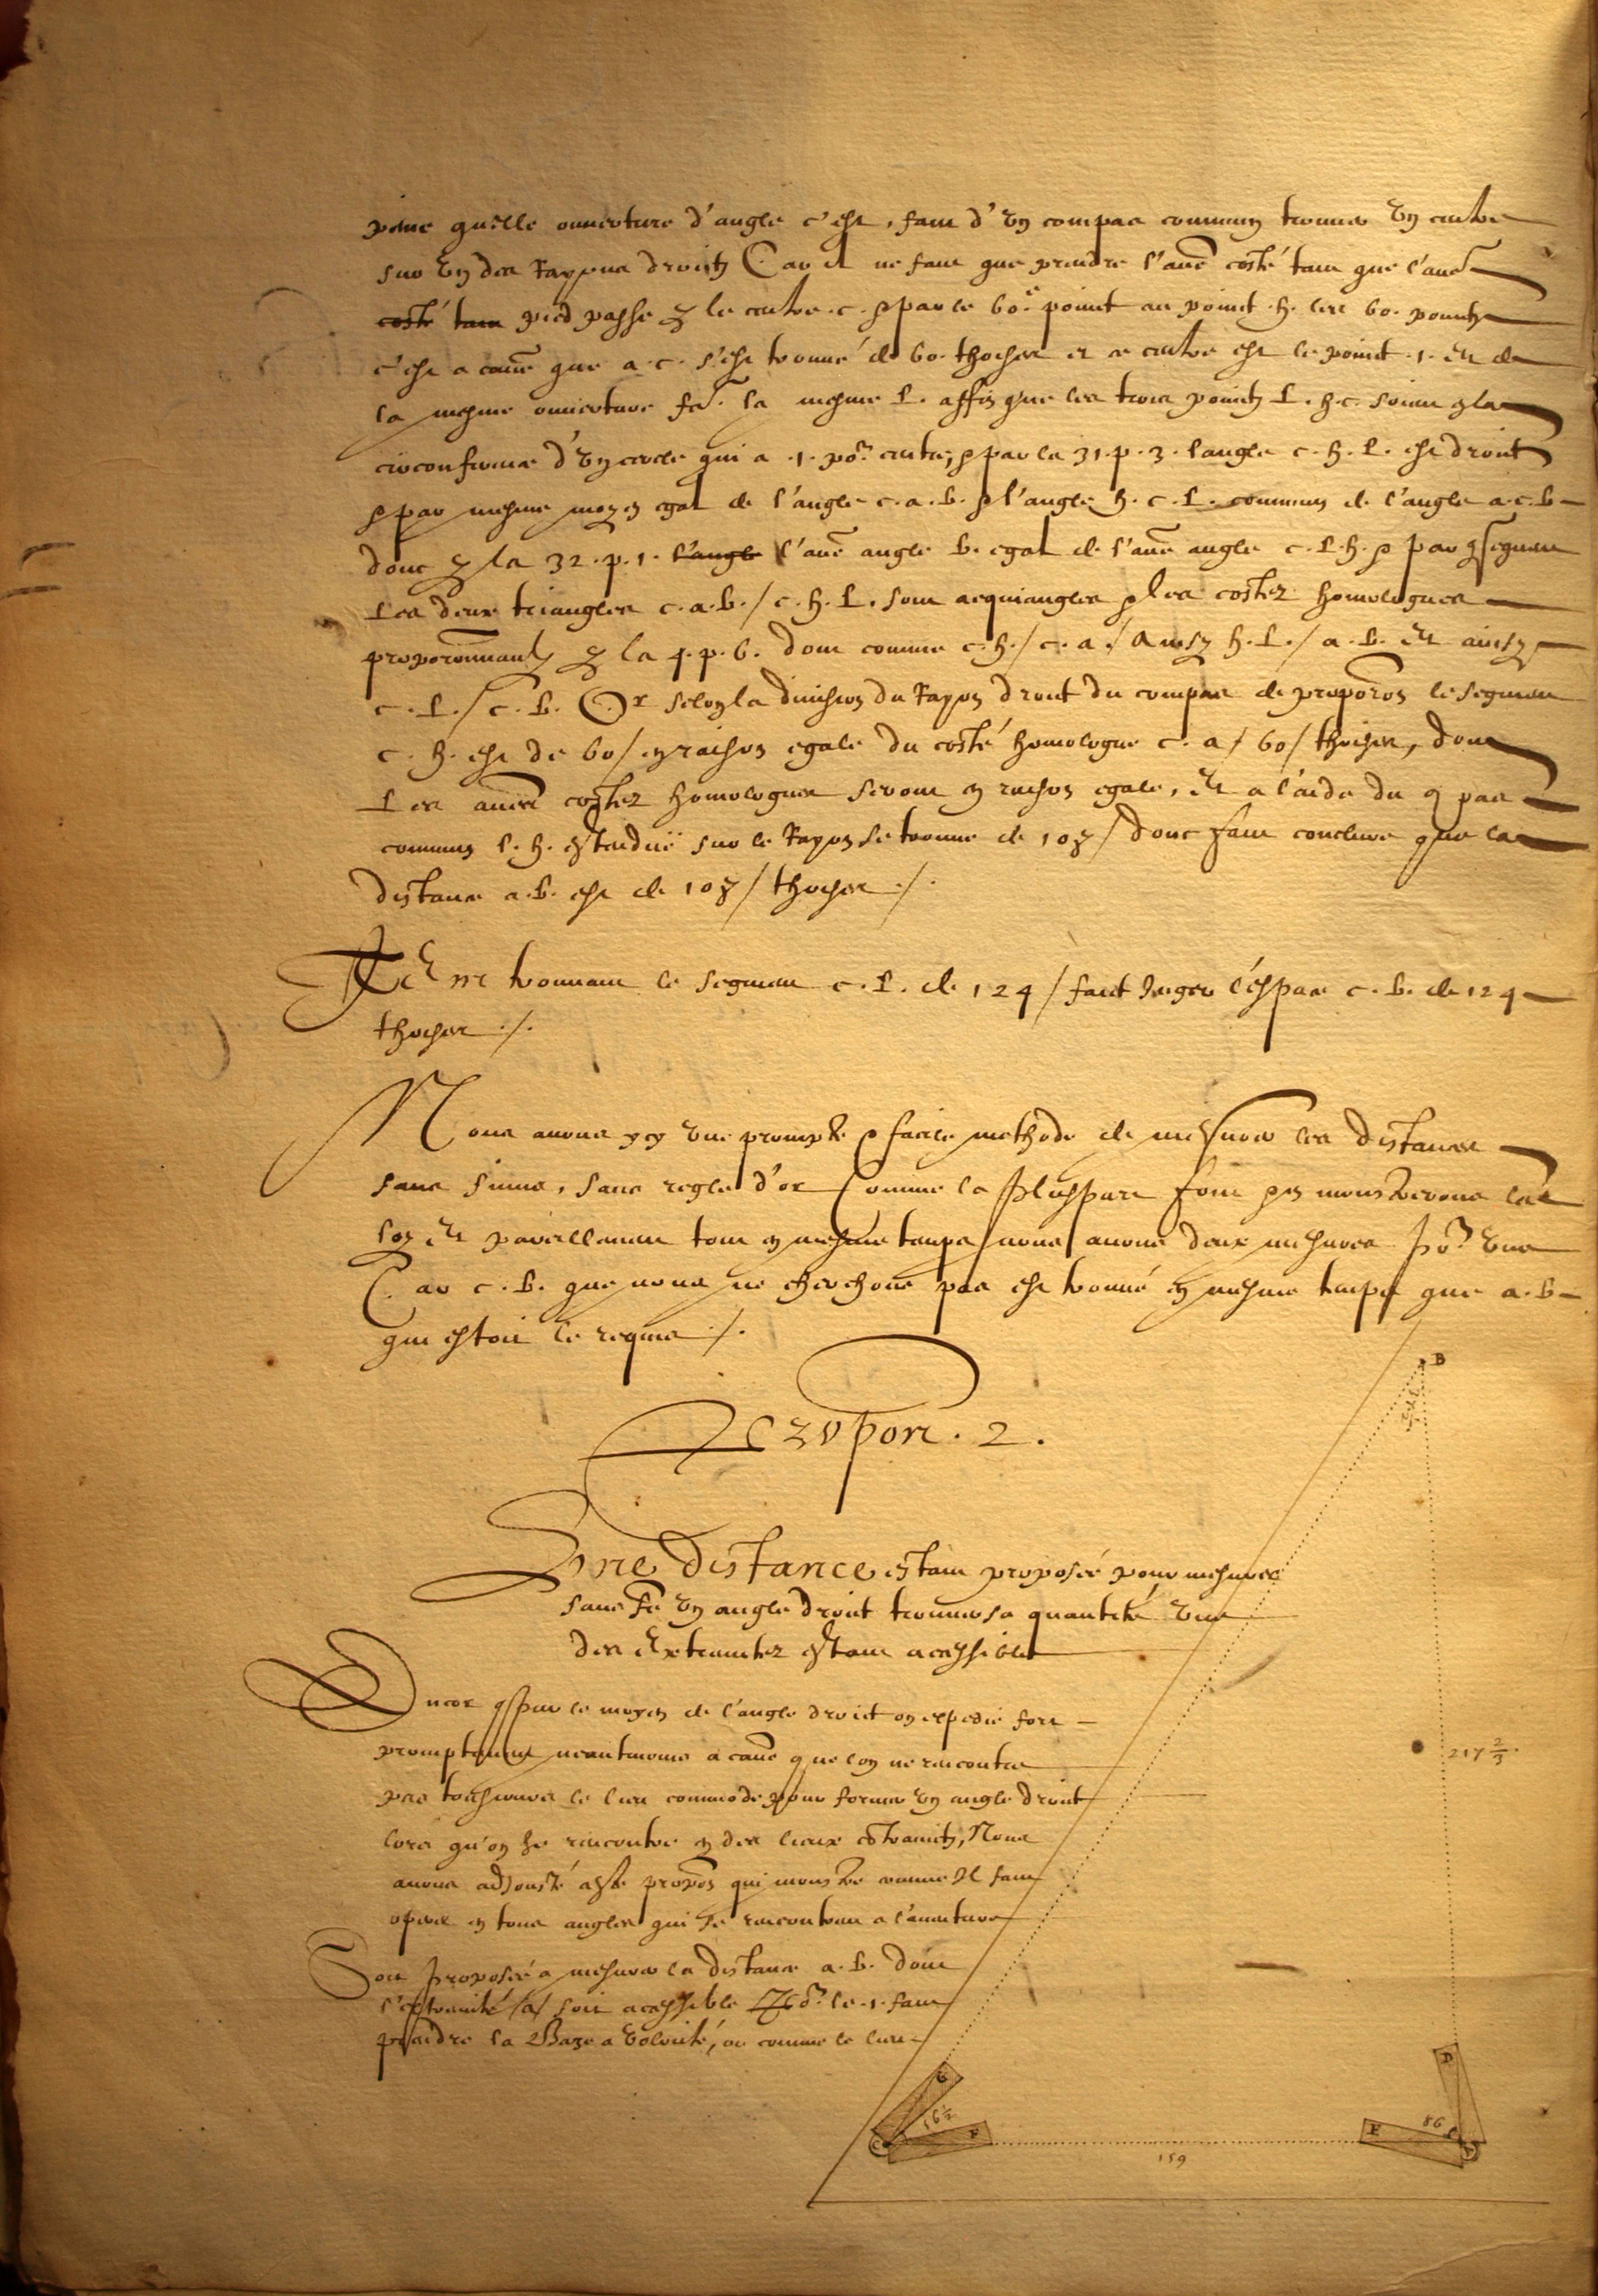 quelle ouuerture d'angle c'est, faut d'vn compas commun trouuer vn centre
sur vn des Rayons droictz Car il ne faut que prendre l'aue costé tant que l'aue
costé tant pied passe p le centre .c. & par le 60.e point au point .h. les 60. pointz
c'est a cause que a.c. s'est trouué de 60. thoises et ce centre est le point .1. Et de
la mesme ouuerture la mesme L. affin que les trois pointz L.h.c. soient
circonference d'vn cercle qui a .1. po.r centre, & par la 31.p.3. langle c.h.L. est droit
& par mesme moyen egal de l'angle c.a.b. & l'angle h.c.L. commun de l'angle a.c.b
donc p la 32.p.1. l'angle l'aue angle b. egal de l'aue angle c.L.h. & par qsequent
Les deux triangles c.a.b./c.h.L. sont aequiangles & les costez homologues
proporonnautz p la 4.p.6. donc comme c.h./c.a./Ainsy h.L./a.b. Et ainsy
c.L./c.b. Or selon la diuision du Rayon droit du compas de proporon le segment
c.h. est de 60/en raison egale du costé homologue c.a/60/thoises, donc
Les aues costez homologues seront en raison egale, Et a l'aide du qpas
commun l.h. estendue sur le Rayon se trouue de 108/donc faut conclure que la
distance a.b. est de 108/thoises ./.
Item trouuant le segment c.L. de 124/faut Juger l'espace c.b. de 124
thoises ./.
Nous auons icy vne prompte & facile methode de mesurer les distances
sans sinus, sans regle d'or Comme la pluspart font & monstrerons
Et pareillement tout en mesme temps nous auons deux mesures po.r vne
Car c.b. que nous ne cherchons pas est trouué en mesme temps que a.b
qui estoit le requis ./.
B
2.
Vne Distance estant proposée pour mesurer
sans fe vn angle droit trouuer sa quantité vne
des Extremitez estant accessible
Encor q par le moyen de l'angle droict on expedie fort
promptement neantmoins a cause que lon ne rencontre
pas tousiours le lieu commode pour former vn angle droit
217 2/3
lors qu'on se rencontre en des lieux côtrainctz, Nous
auons adjousté aste propôn qui monstre comme Il faut
operer en tous angles qui se rencontrent a l'auenture
Soit proposée a mesurer la distance a.b. dont
l'extremité /a/ soit accessible le .1. faut
prendre la Baze a volonté, ou comme le lieu
D
G
16 1/2
F
C
E
86
A
159